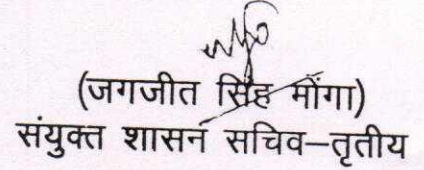 (जगजीत सिंह मोंगा)
संयुक्त शासन सचिव–तृतीय